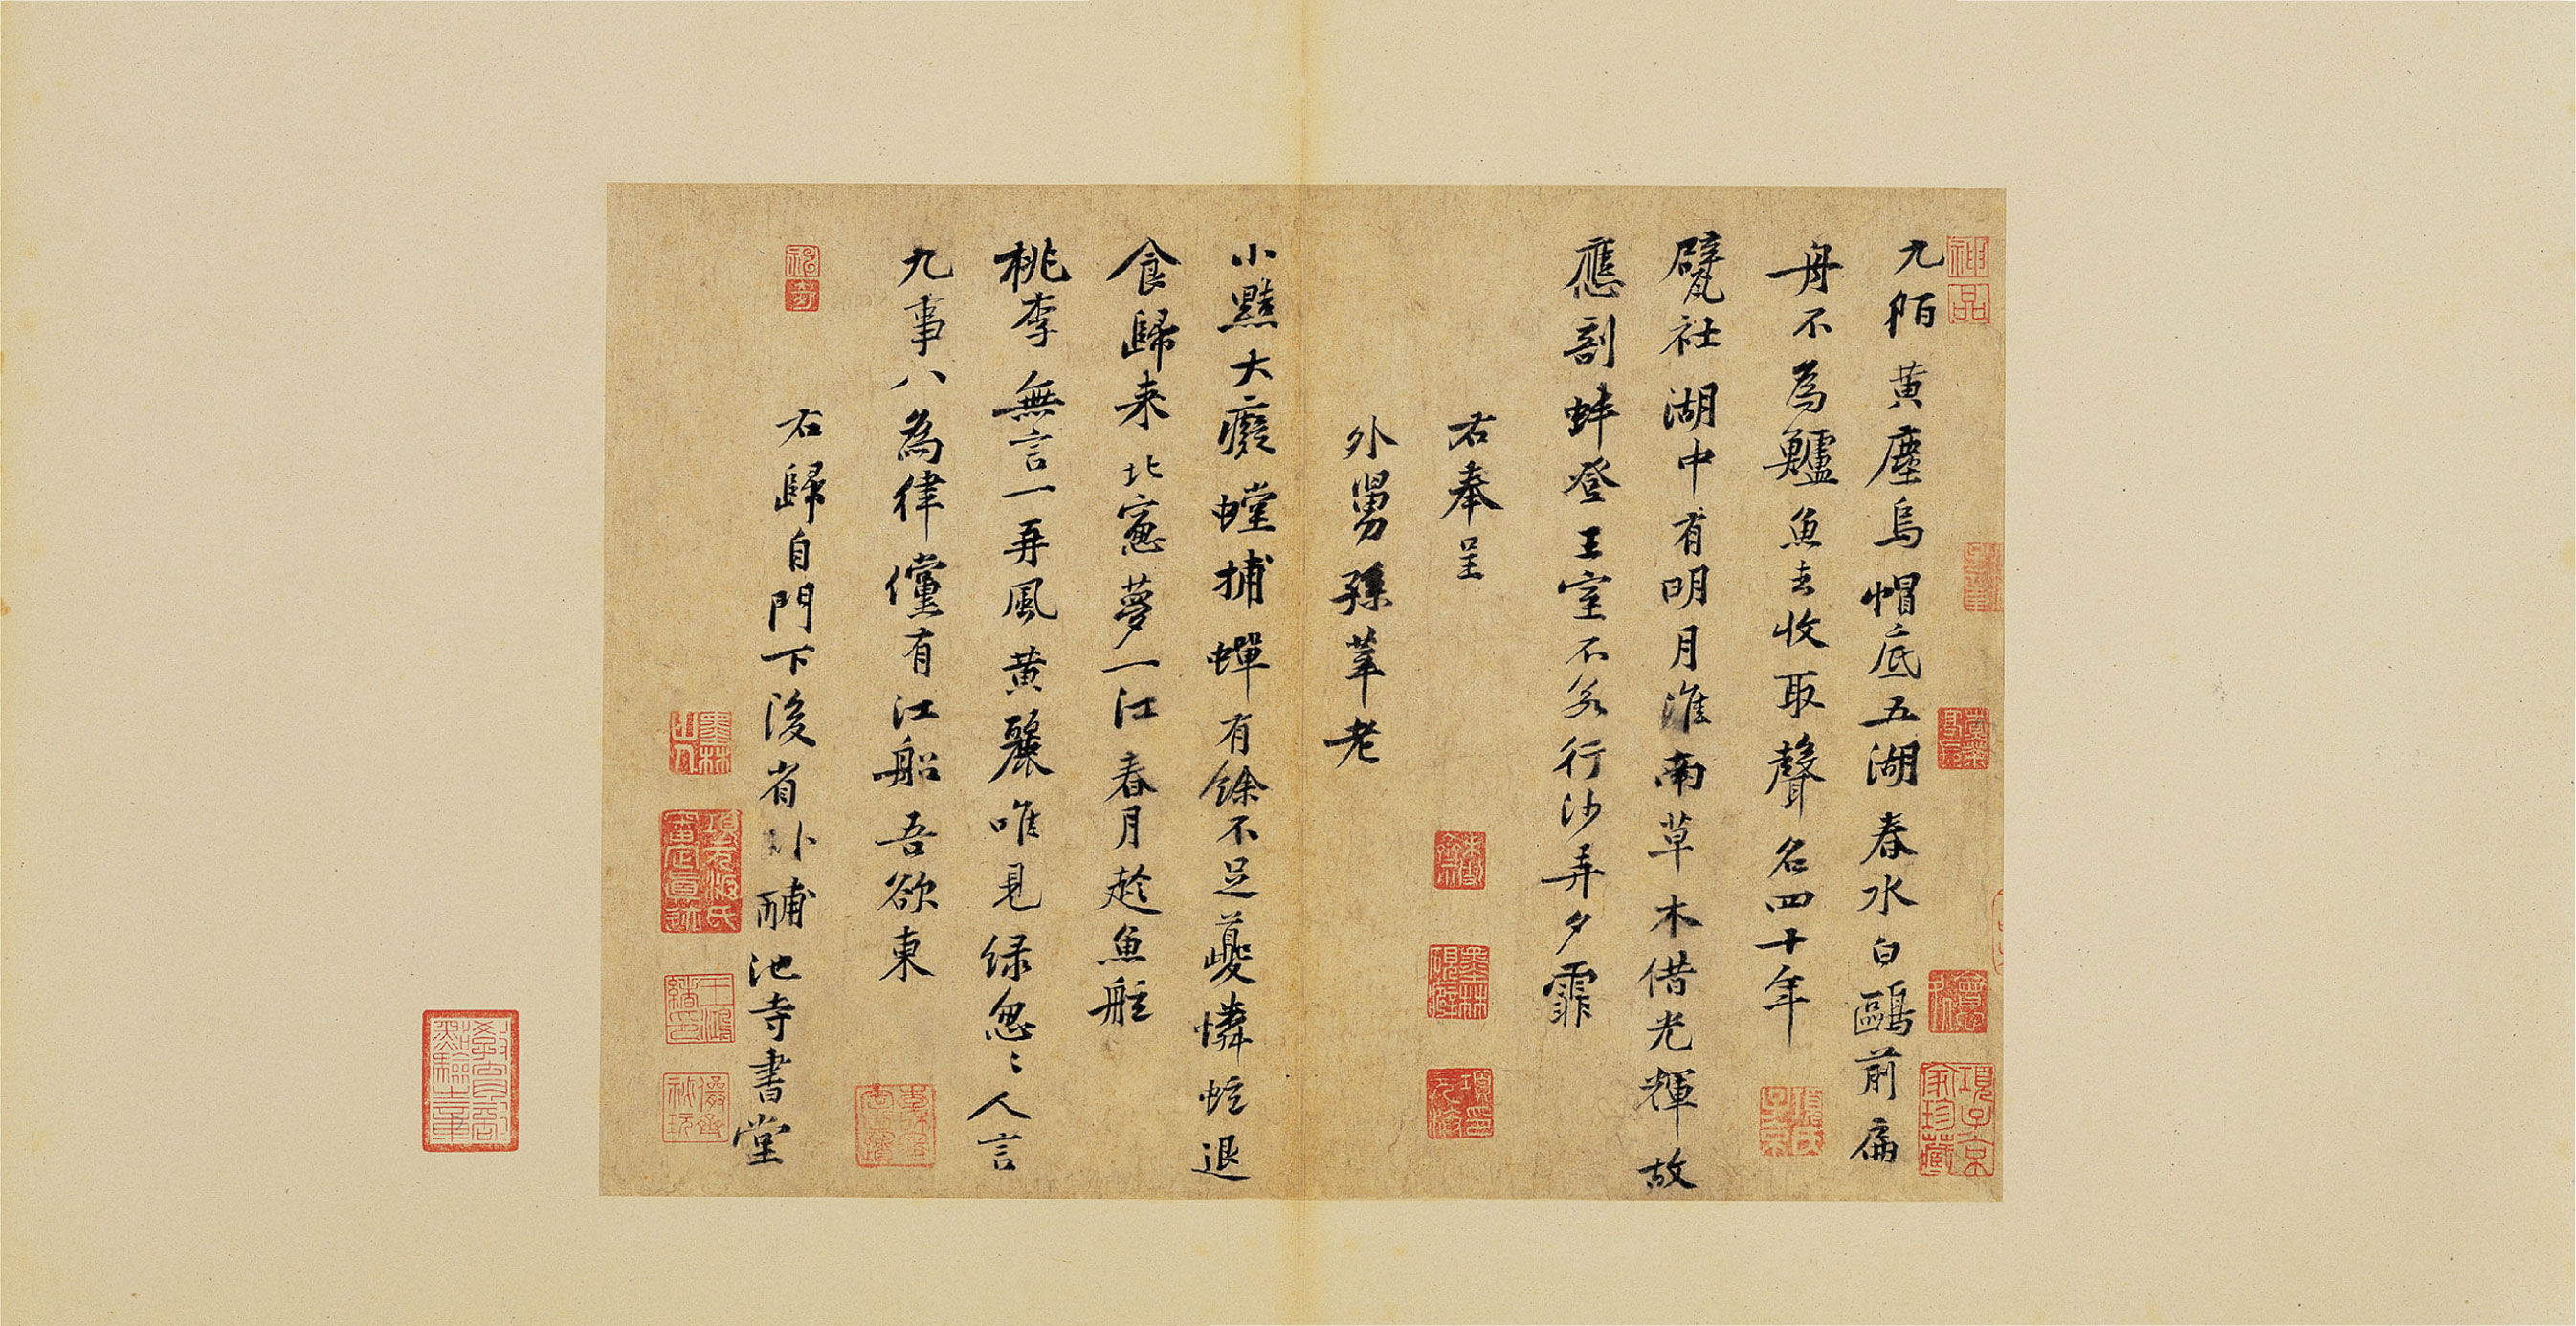 九陌黃塵烏帽底五湖春水白鷗前扁
舟不為鱸魚去收取聲名四十年
甓社湖中有明月淮南草木借光輝故
應剖蚌登王室不若行沙弄夕霏
右奉呈
外舅孫莘老
小黠大癡螳捕蟬有餘不足夔憐蚿退
食歸来北窻夢一江春月趁魚船
桃李無言一再風黃麗唯見緑怱〻人言
九事八為律儻有江船吾欲東
右歸自門下後省卧酺池寺書堂
神
品
項子京
家珍藏
墨林
山人
項元汴氏
審定真跡